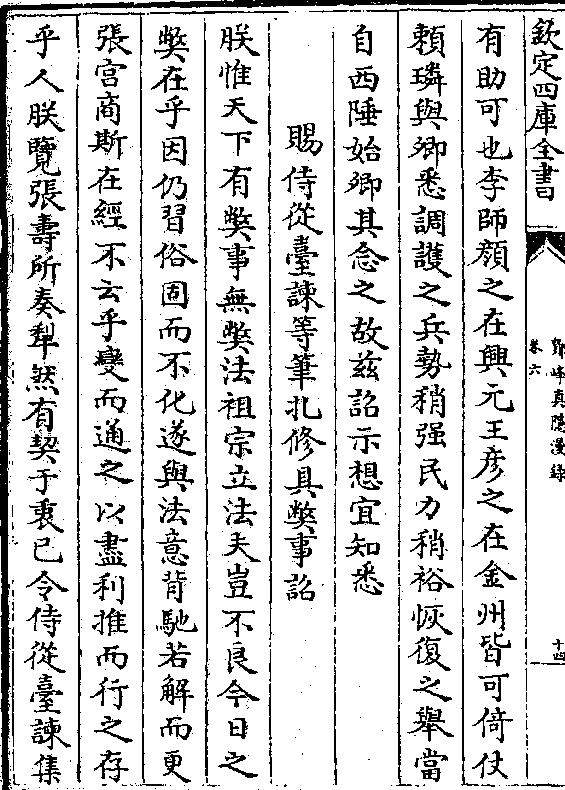 欽定四庫全書
鄮峰真隱漫錄
卷六
十四
有助可也李師顔之在興元王彦之在金州皆可倚仗
頼璘與卿悉調護之兵勢稍强民力稍裕恢復之舉當
自西陲始卿其念之故兹詔示想宜知悉
賜侍從臺諫等筆札修具弊事詔
朕惟天下有弊事無弊法祖宗立法夫豈不良今日之
弊在乎因仍習俗固而不化遂與法意背馳若解而更
張宫商斯在經不云乎變而通之以盡利推而行之存
乎人朕覽張壽所奏犁然有契于衷已令侍從臺諫集